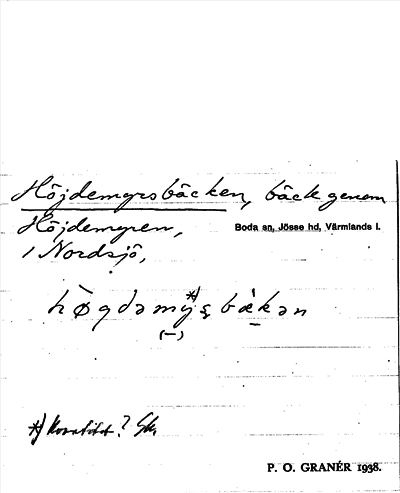 Höjdemyrsbäcken, bäck genom
Höjdemyren,
Boda sn, Jösse hd, Värmlands l.
i Nordsjö,
hø̀gdəmy*)ʂbækən
(–)
*) Kvantitet?
P. O. GRANÉR 1938.